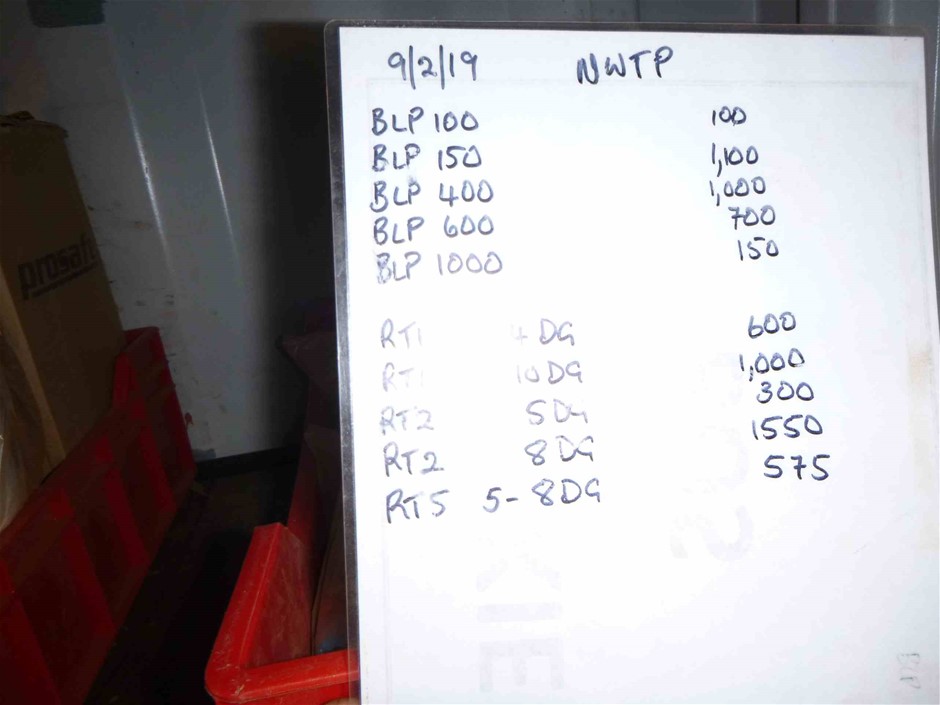 prosafe
9/2/19 NWTP
BLP 100 100
BLP 150 1,100
BLP 400 1,000
BLP 600 700
BLP 1000 150
RT1 4DG 600
RT1 10DG 1,000
RT2 5DG 300
RT2 8DG 1550
RT5 5-8DG 575